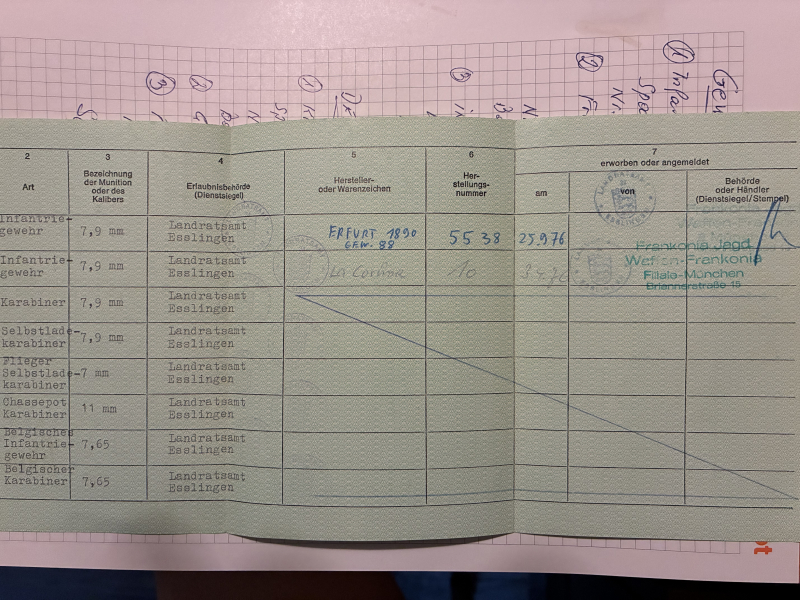 2
3
4
5
6
7
Art
Bezeichnung
der Munition
oder des
Kalibers
Erlaubnisbehörde
(Dienstsiegel)
Hersteller-
oder Warenzeichen
Her-
stellungs-
nummer
erworben oder angemeldet
am
von
Behörde
oder Händler
(Dienstsiegel/Stempel)
Infantrie-
gewehr
7,9 mm
Landratsamt
Esslingen
ERFURT 1890
GEW. 88
5538
25.9.76
Frankonia Jagd
Waffen-Frankonia
Filiale-München
Briennerstraße 15
Infantrie-
gewehr
7,9 mm
Landratsamt
Esslingen
La Coruna
10
Karabiner
7,9 mm
Landratsamt
Esslingen
Selbstlade-
karabiner
7,9 mm
Landratsamt
Esslingen
Flieger
Selbstlade-
karabiner
7 mm
Landratsamt
Esslingen
Chassepot
Karabiner
11 mm
Landratsamt
Esslingen
Belgisches
Infantrie-
gewehr
7,65
Landratsamt
Esslingen
Belgischer
Karabiner
7,65
Landratsamt
Esslingen